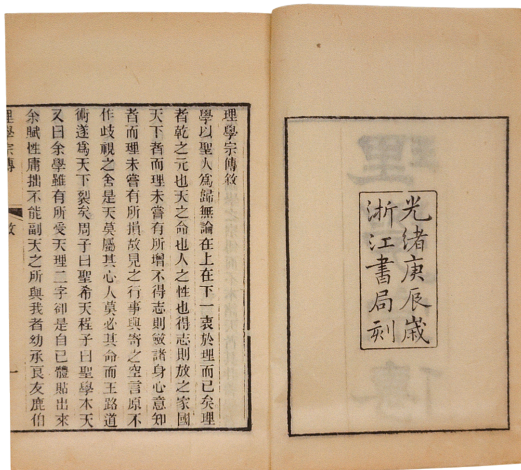 光緒庚辰歲
浙江書局刻
理學宗傳敘
學以聖人爲歸無論在上在下一衷於理而已矣理
者乾之元也天之命也人之性也得志則放之家國
天下者而理未嘗有所增不得志則斂諸身心意知
者而理未嘗有所損故見之行事與寄之空言原不
作歧視之舍是天莫屬其心人莫必其命而王路道
術遂爲天下裂矣周子曰聖希天程子曰聖學本天
又曰余學雖有所受天理二字卻是自己體貼出來
余賦性庸拙不能副天之所與我者幼承良友鹿伯
理學宗傳
敘
一